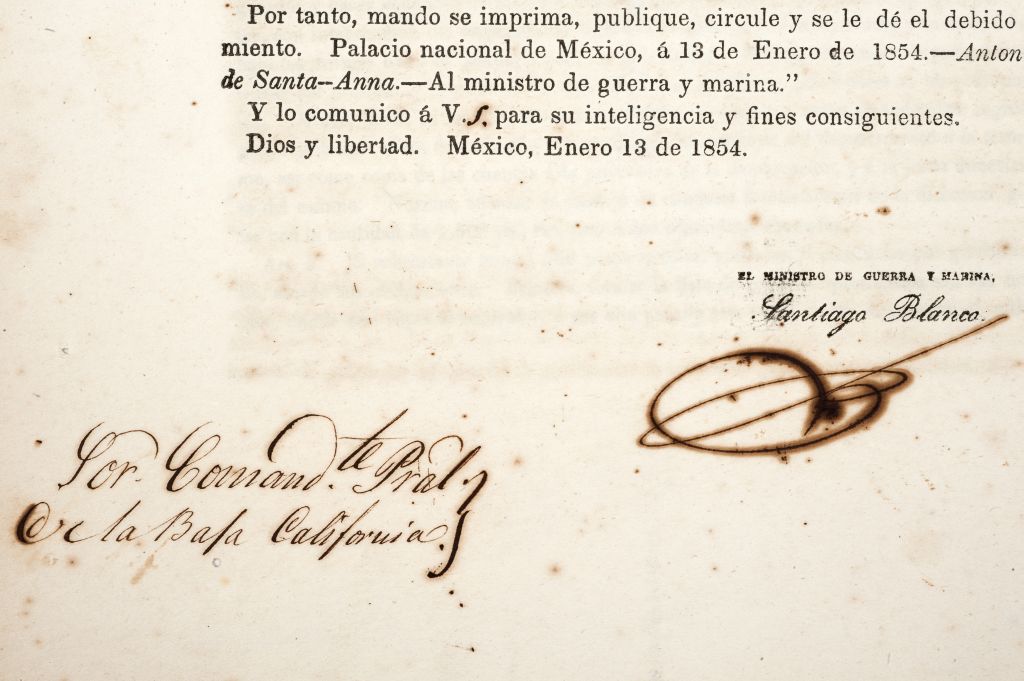 Por tanto, mando se imprima, publique, circule y se le dé el debido
miento. Palacio nacional de México, á 13 de Enero de 1854.—Anton
de Santa--Anna.—Al ministro de guerra y marina.”
Y lo comunico á V.S. para su inteligencia y fines consiguientes.
Dios y libertad. México, Enero 13 de 1854.
EL MINISTRO DE GUERRA Y MARINA,
Santiago Blanco.
Sor. Comand.te Pral.
De la Baja California.